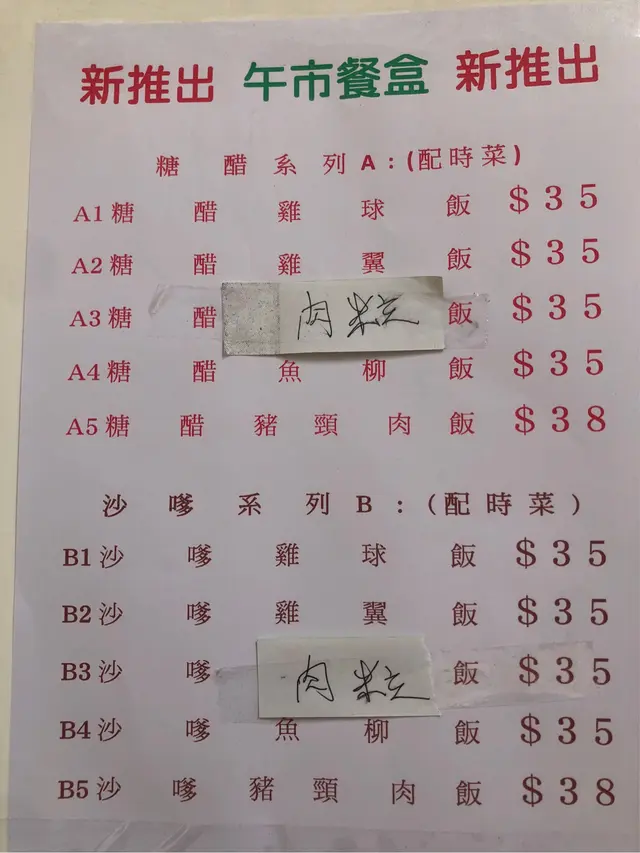 新推出 午市餐盒 新推出
糖醋系列A:(配時菜)
A1糖醋雞球飯 $35
A2糖醋雞翼飯 $35
A3糖醋肉粒飯 $35
A4糖醋魚柳飯 $35
A5糖醋豬頸肉飯 $38
沙嗲系列B:(配時菜)
B1沙嗲雞球飯 $35
B2沙嗲雞翼飯 $35
B3沙嗲肉粒飯 $35
B4沙嗲魚柳飯 $35
B5沙嗲豬頸肉飯 $38